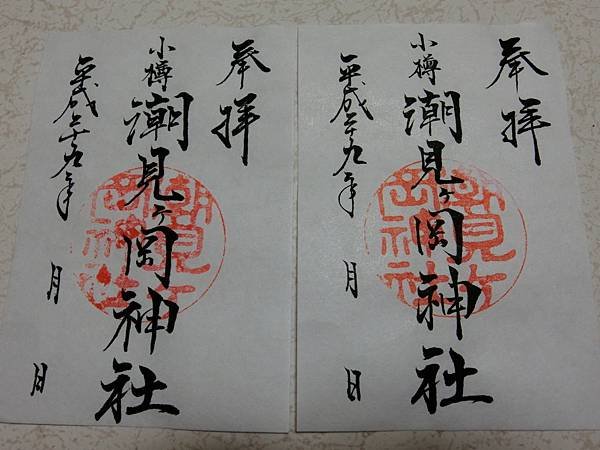 奉拝
小樽
潮見ヶ岡神社
平成二十九年
月
日
奉拝
小樽
潮見ヶ岡神社
平成二十九年
月
日